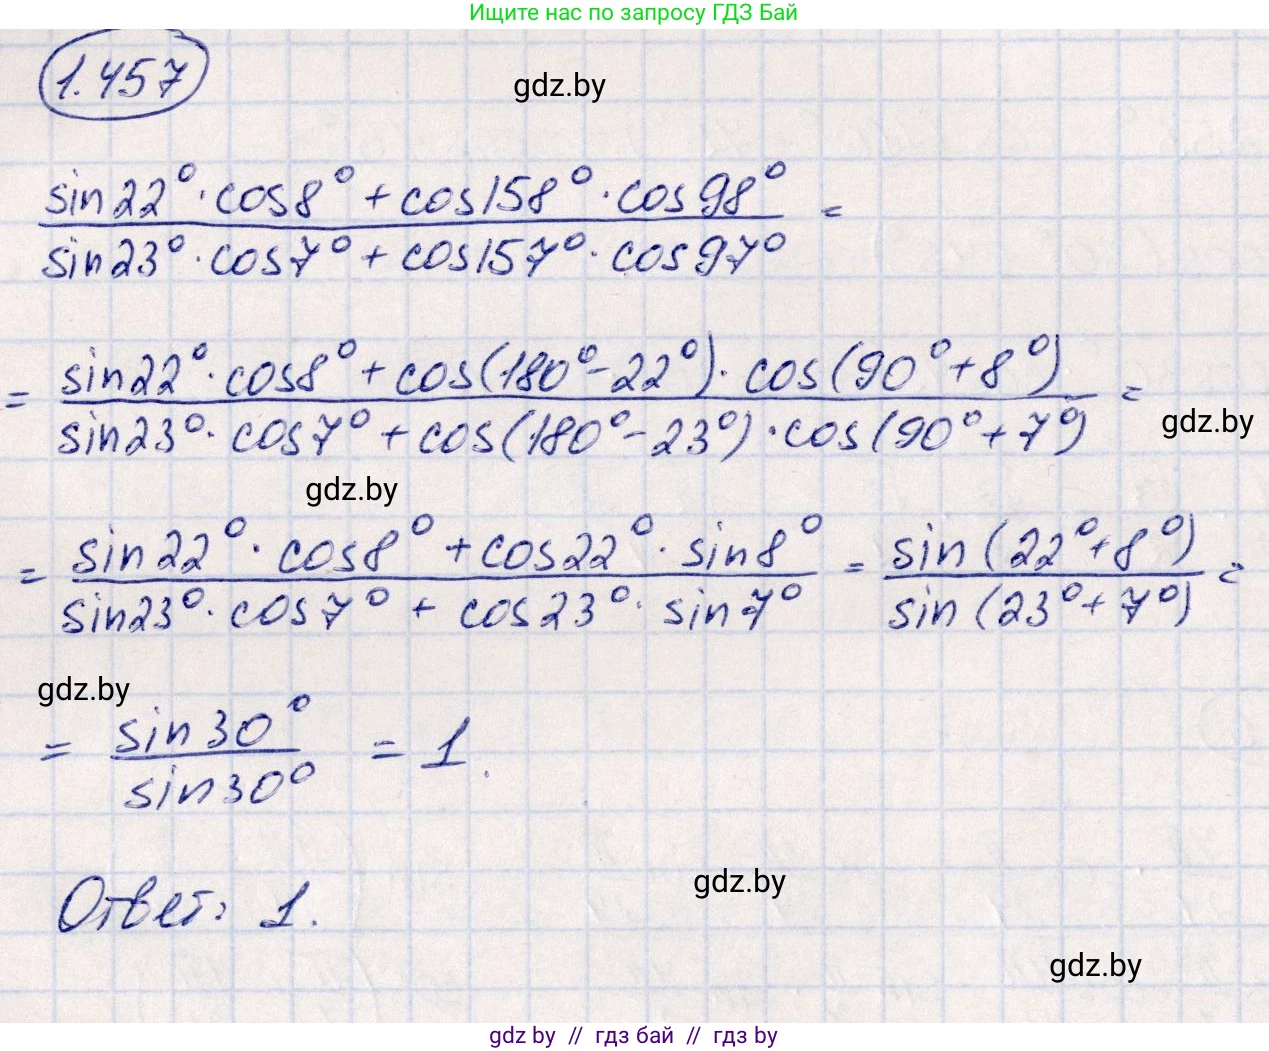 Ищите нас по запросу ГДЗ Бай
1.457
gdz.by
sin22°·cos8° + cos158°·cos98°
=
sin23°·cos7° + cos157°·cos97°
sin22°·cos8° + cos(180°-22°)·cos(90°+8°)
= =
sin23°·cos7° + cos(180°-23°)·cos(90°+7°)
gdz.by
gdz.by
sin22°·cos8° + cos22°·sin8° sin(22°+8°)
= = =
sin23°·cos7° + cos23°·sin7° sin(23°+7°)
gdz.by
sin30°
= = 1.
sin30°
gdz.by
Ответ: 1.
gdz.by
gdz by // гдз бай // гдз by